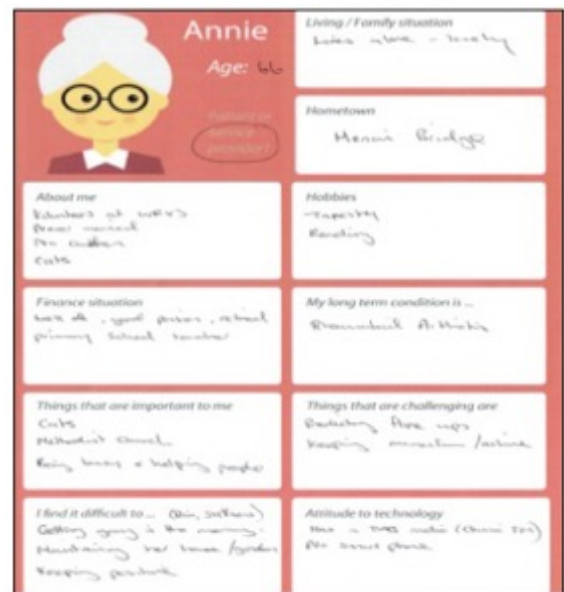 Annie
Age: 66
Patient or
service
provider?
Living / Family situation
Lives alone - lonely
Hometown
Menai Bridge
About me
Volunteers at WRVS
Never married
No children
Cats
Hobbies
Tapestry
Reading
Finance situation
well off, good pension, retired
primary school teacher
My long term condition is ...
Rheumatoid Arthritis
Things that are important to me
Cats
Methodist Church
Being busy + helping people
Things that are challenging are
flare ups
Keeping /active
I find it difficult to ... (Pain, stiffness)
Getting going in the morning
Maintaining her home /garden
Keeping positive
Attitude to technology
Has a
No smart phone